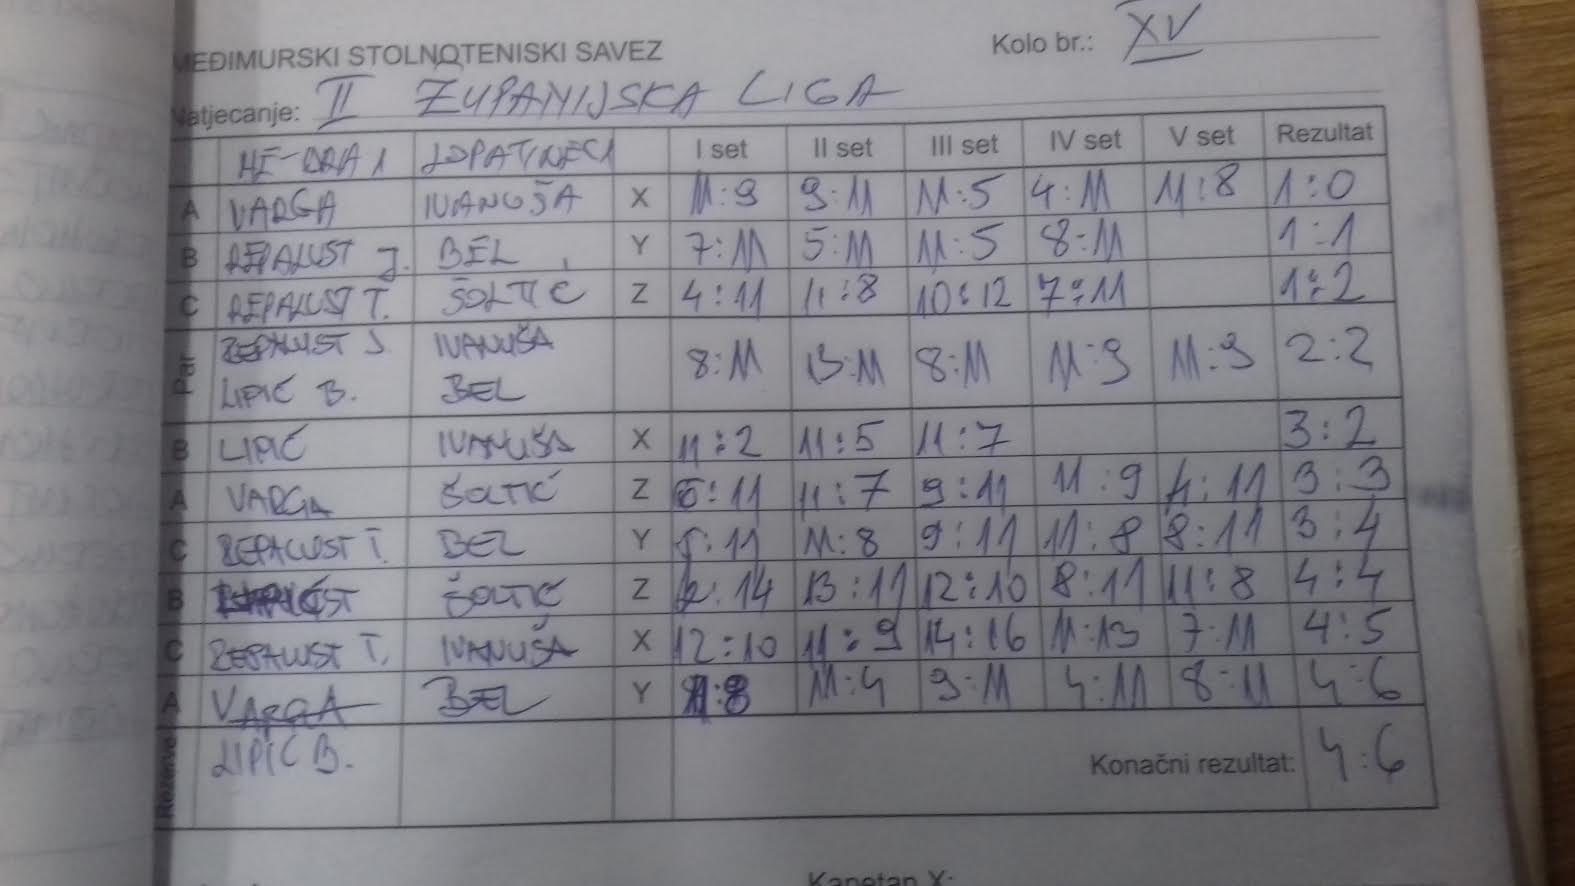 MEĐIMURSKI STOLNOTENISKI SAVEZ
Kolo br.: XV
Natjecanje: II ŽUPANIJSKA LIGA
LOPATINEC I set II set III set IV set V set Rezultat
A VARGA IVANUŠA X 11:9 9:11 11:5 4:11 11:8 1:0
B REPALUST J. BEL Y 7:11 5:11 11:5 8:11 1:1
C REPALUST T. ŠOLTIĆ Z 4:11 11:8 10:12 7:11 1:2
Par REPALUST J IVANUŠA 8:11 13:11 8:11 11:9 11:9 2:2
LIPIĆ B. BEL
B LIPIĆ IVANUŠA X 11:2 11:5 11:7 3:2
A VARGA ŠOLTIĆ Z 6:11 11:7 9:11 11:9 4:11 3:3
C REPALUST T. BEL Y 5:11 11:8 9:11 11:8 8:11 3:4
B ŠOLTIĆ Z 12:14 13:11 12:10 8:11 11:8 4:4
C REPALUST T. IVANUŠA X 12:10 11:9 14:16 11:13 7:11 4:5
A VARGA BEL Y 11:8 11:4 9:11 4:11 8:11 4:6
Rezerve LIPIĆ B. Konačni rezultat: 4:6
Kapetan X: